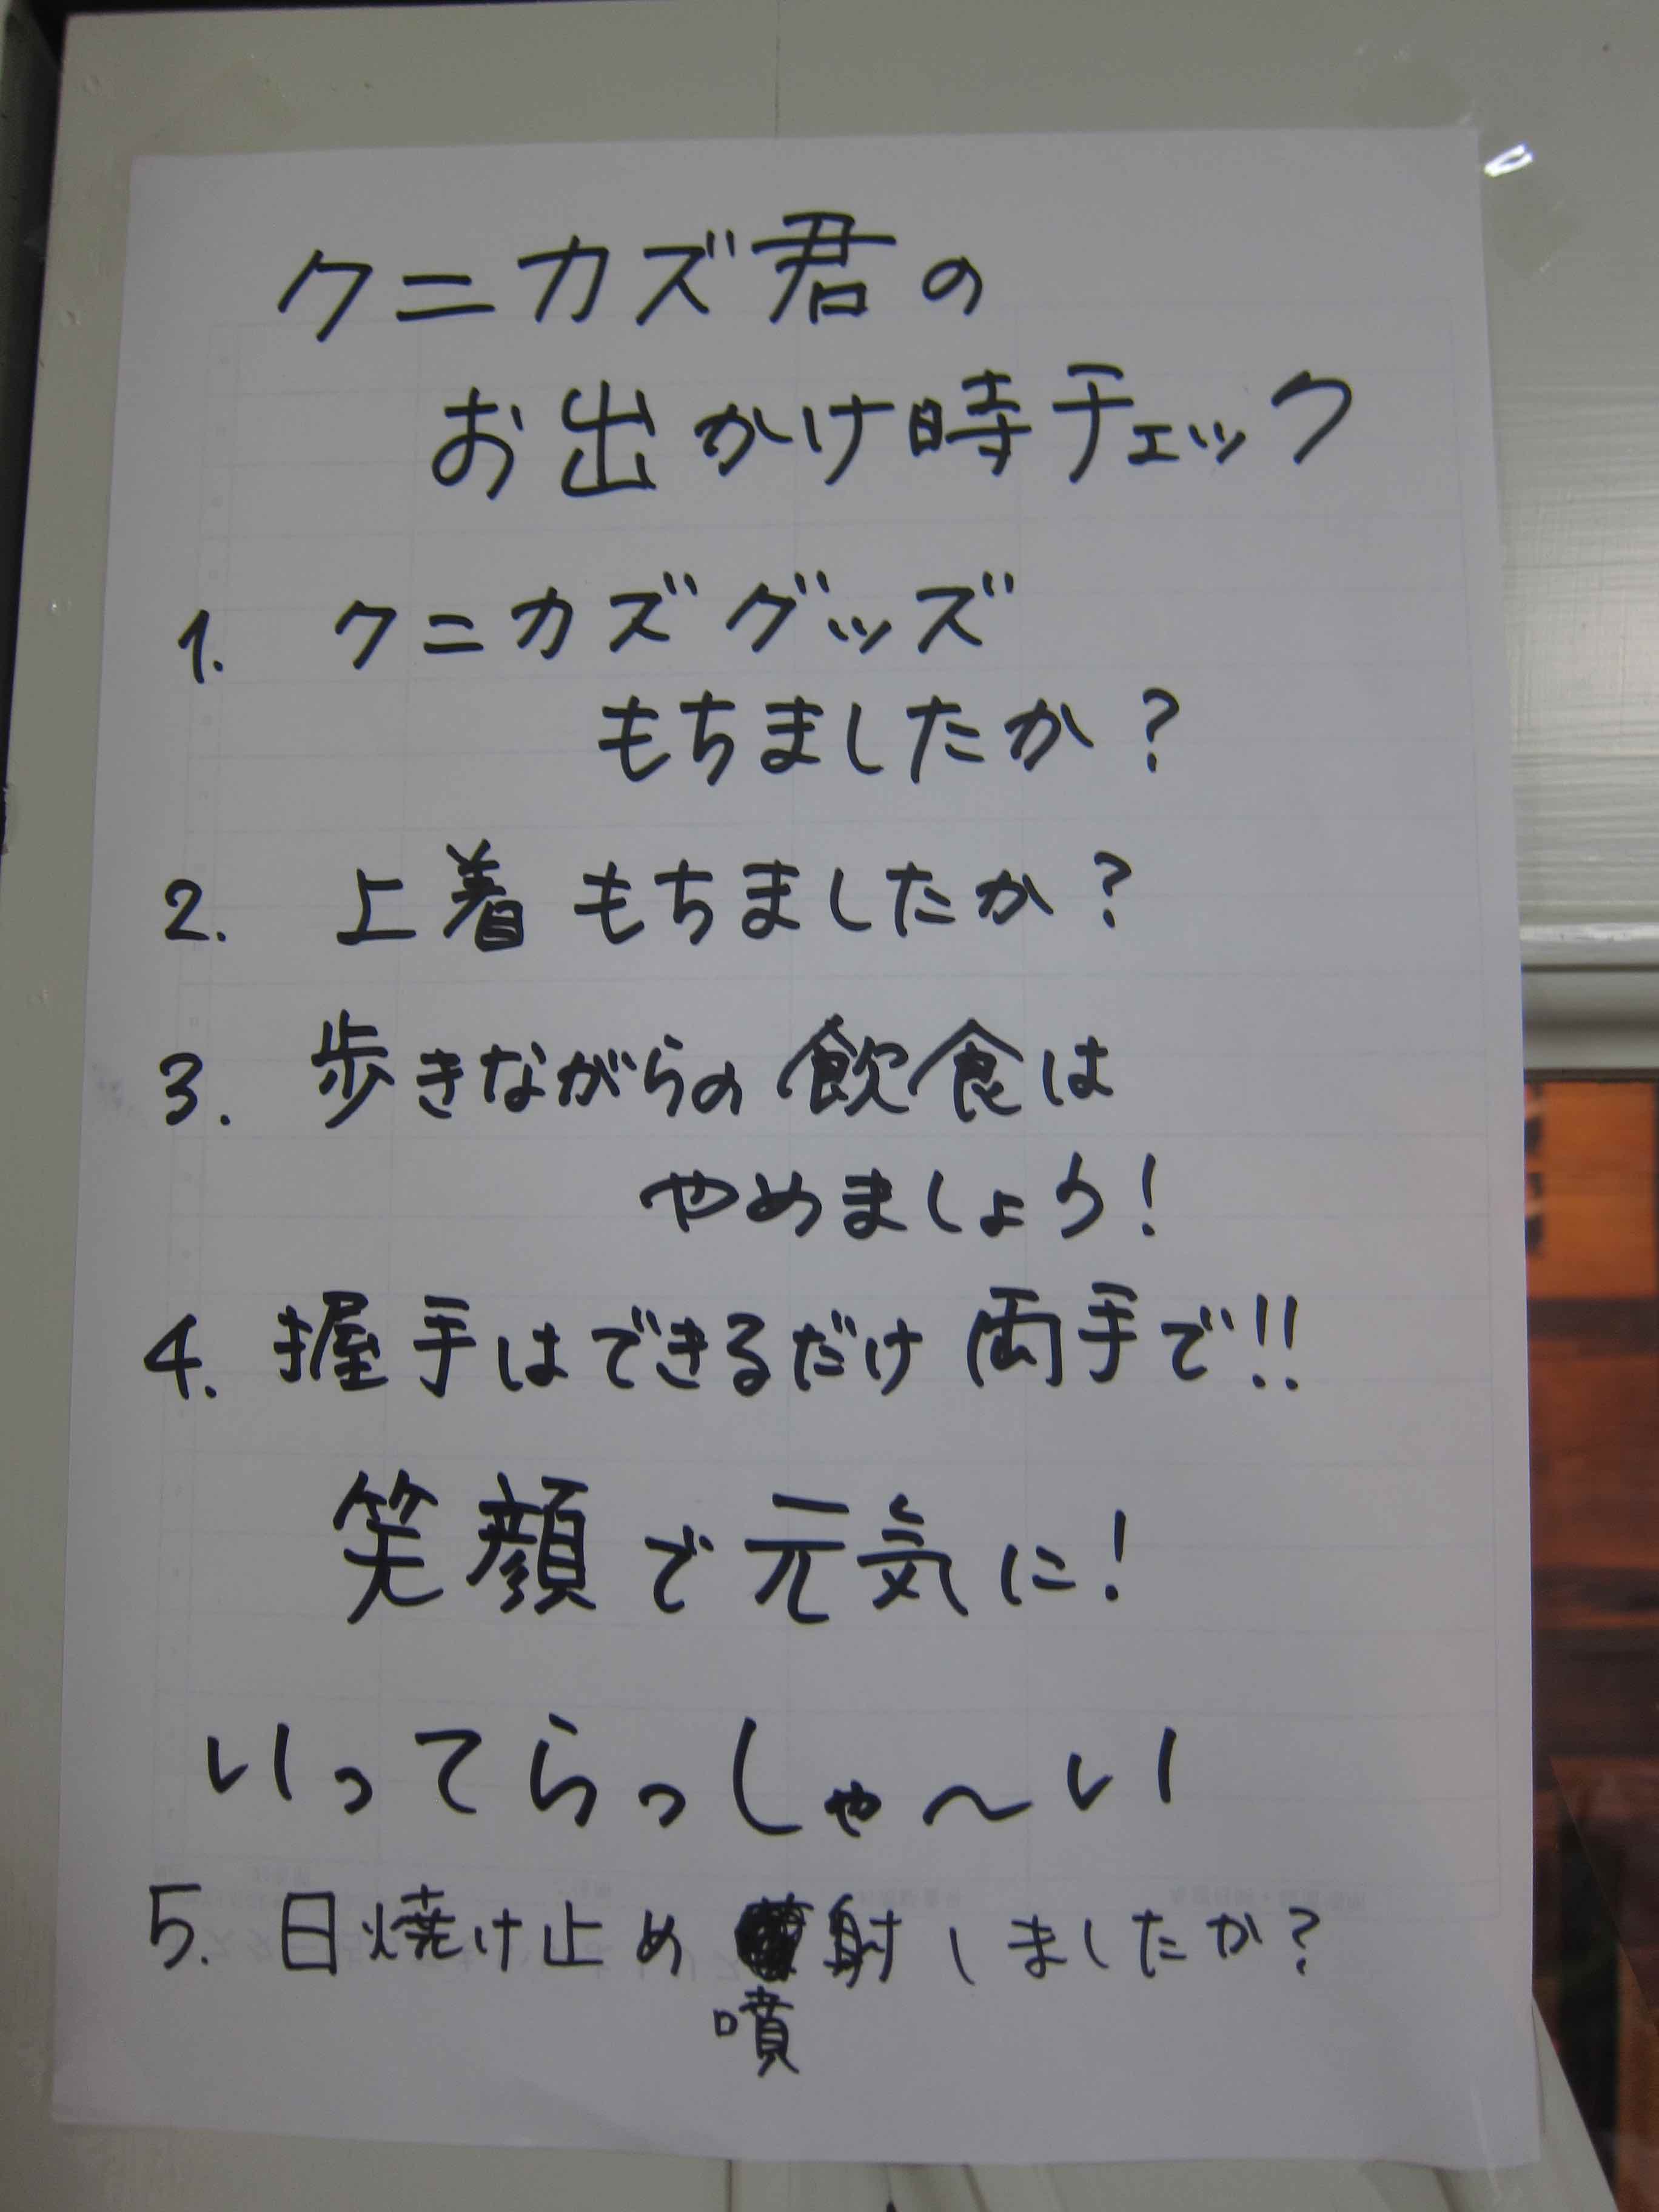 クニカズ君の
お出かけ時チェック
1. クニカズグッズ
もちましたか?
2. 上着もちましたか?
3. 歩きながらの飲食は
やめましょう!
4. 握手はできるだけ両手で!!
笑顔で元気に!
いってらっしゃ〜い
5. 日焼け止め射しましたか?
噴